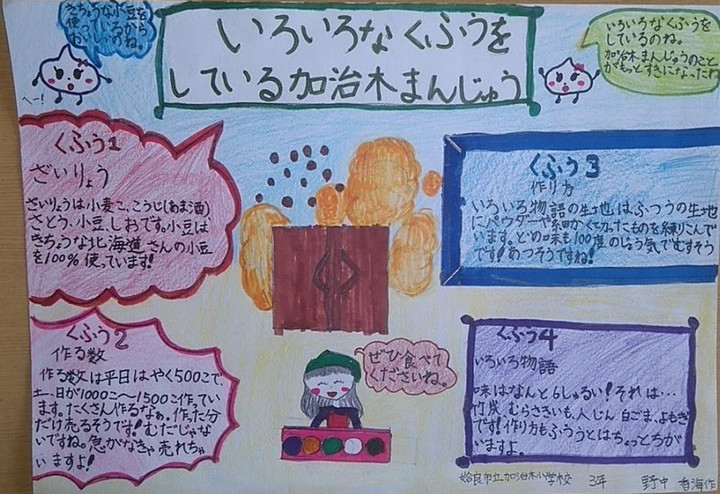 いろいろなくふうを
している加治木まんじゅう
きちょうな小豆を
使っているから
へー!
いろいろなくふうを
しているのね。
加治木まんじゅうのこと
がもっとすきになったわ
くふう1
ざいりょう
ざいりょうは小麦こ、こうじ(あま酒)
さとう、小豆、しおです。小豆は、
きちょうな北海道さんの小豆
を100%使っています!
くふう3
作り方
いろいろ物語の生地は、ふつうの生地
にパウダーや細かく切ったものを練りこんで
います。どの味も100度のじょう気でむすそう
です!あつそうですね!
くふう2
作る数
作る数は平日はやく500こで、
土、日が1000こ〜1500こ作ってい
ます。たくさん作るなぁ。作った分
だけ売るそうです!むだじゃな
いですね。急がなきゃ売れちゃ
いますよ!
ぜひ食べて
くださいね。
くふう4
いろいろ物語
味はなんと6しゅるい!それは…
竹炭、むらさきいも、人じん、白ごま、よもぎ
です!作り方もふつうとはちょっとちが
いますよ。
姶良市立加治木小学校 3年 野中 香海作